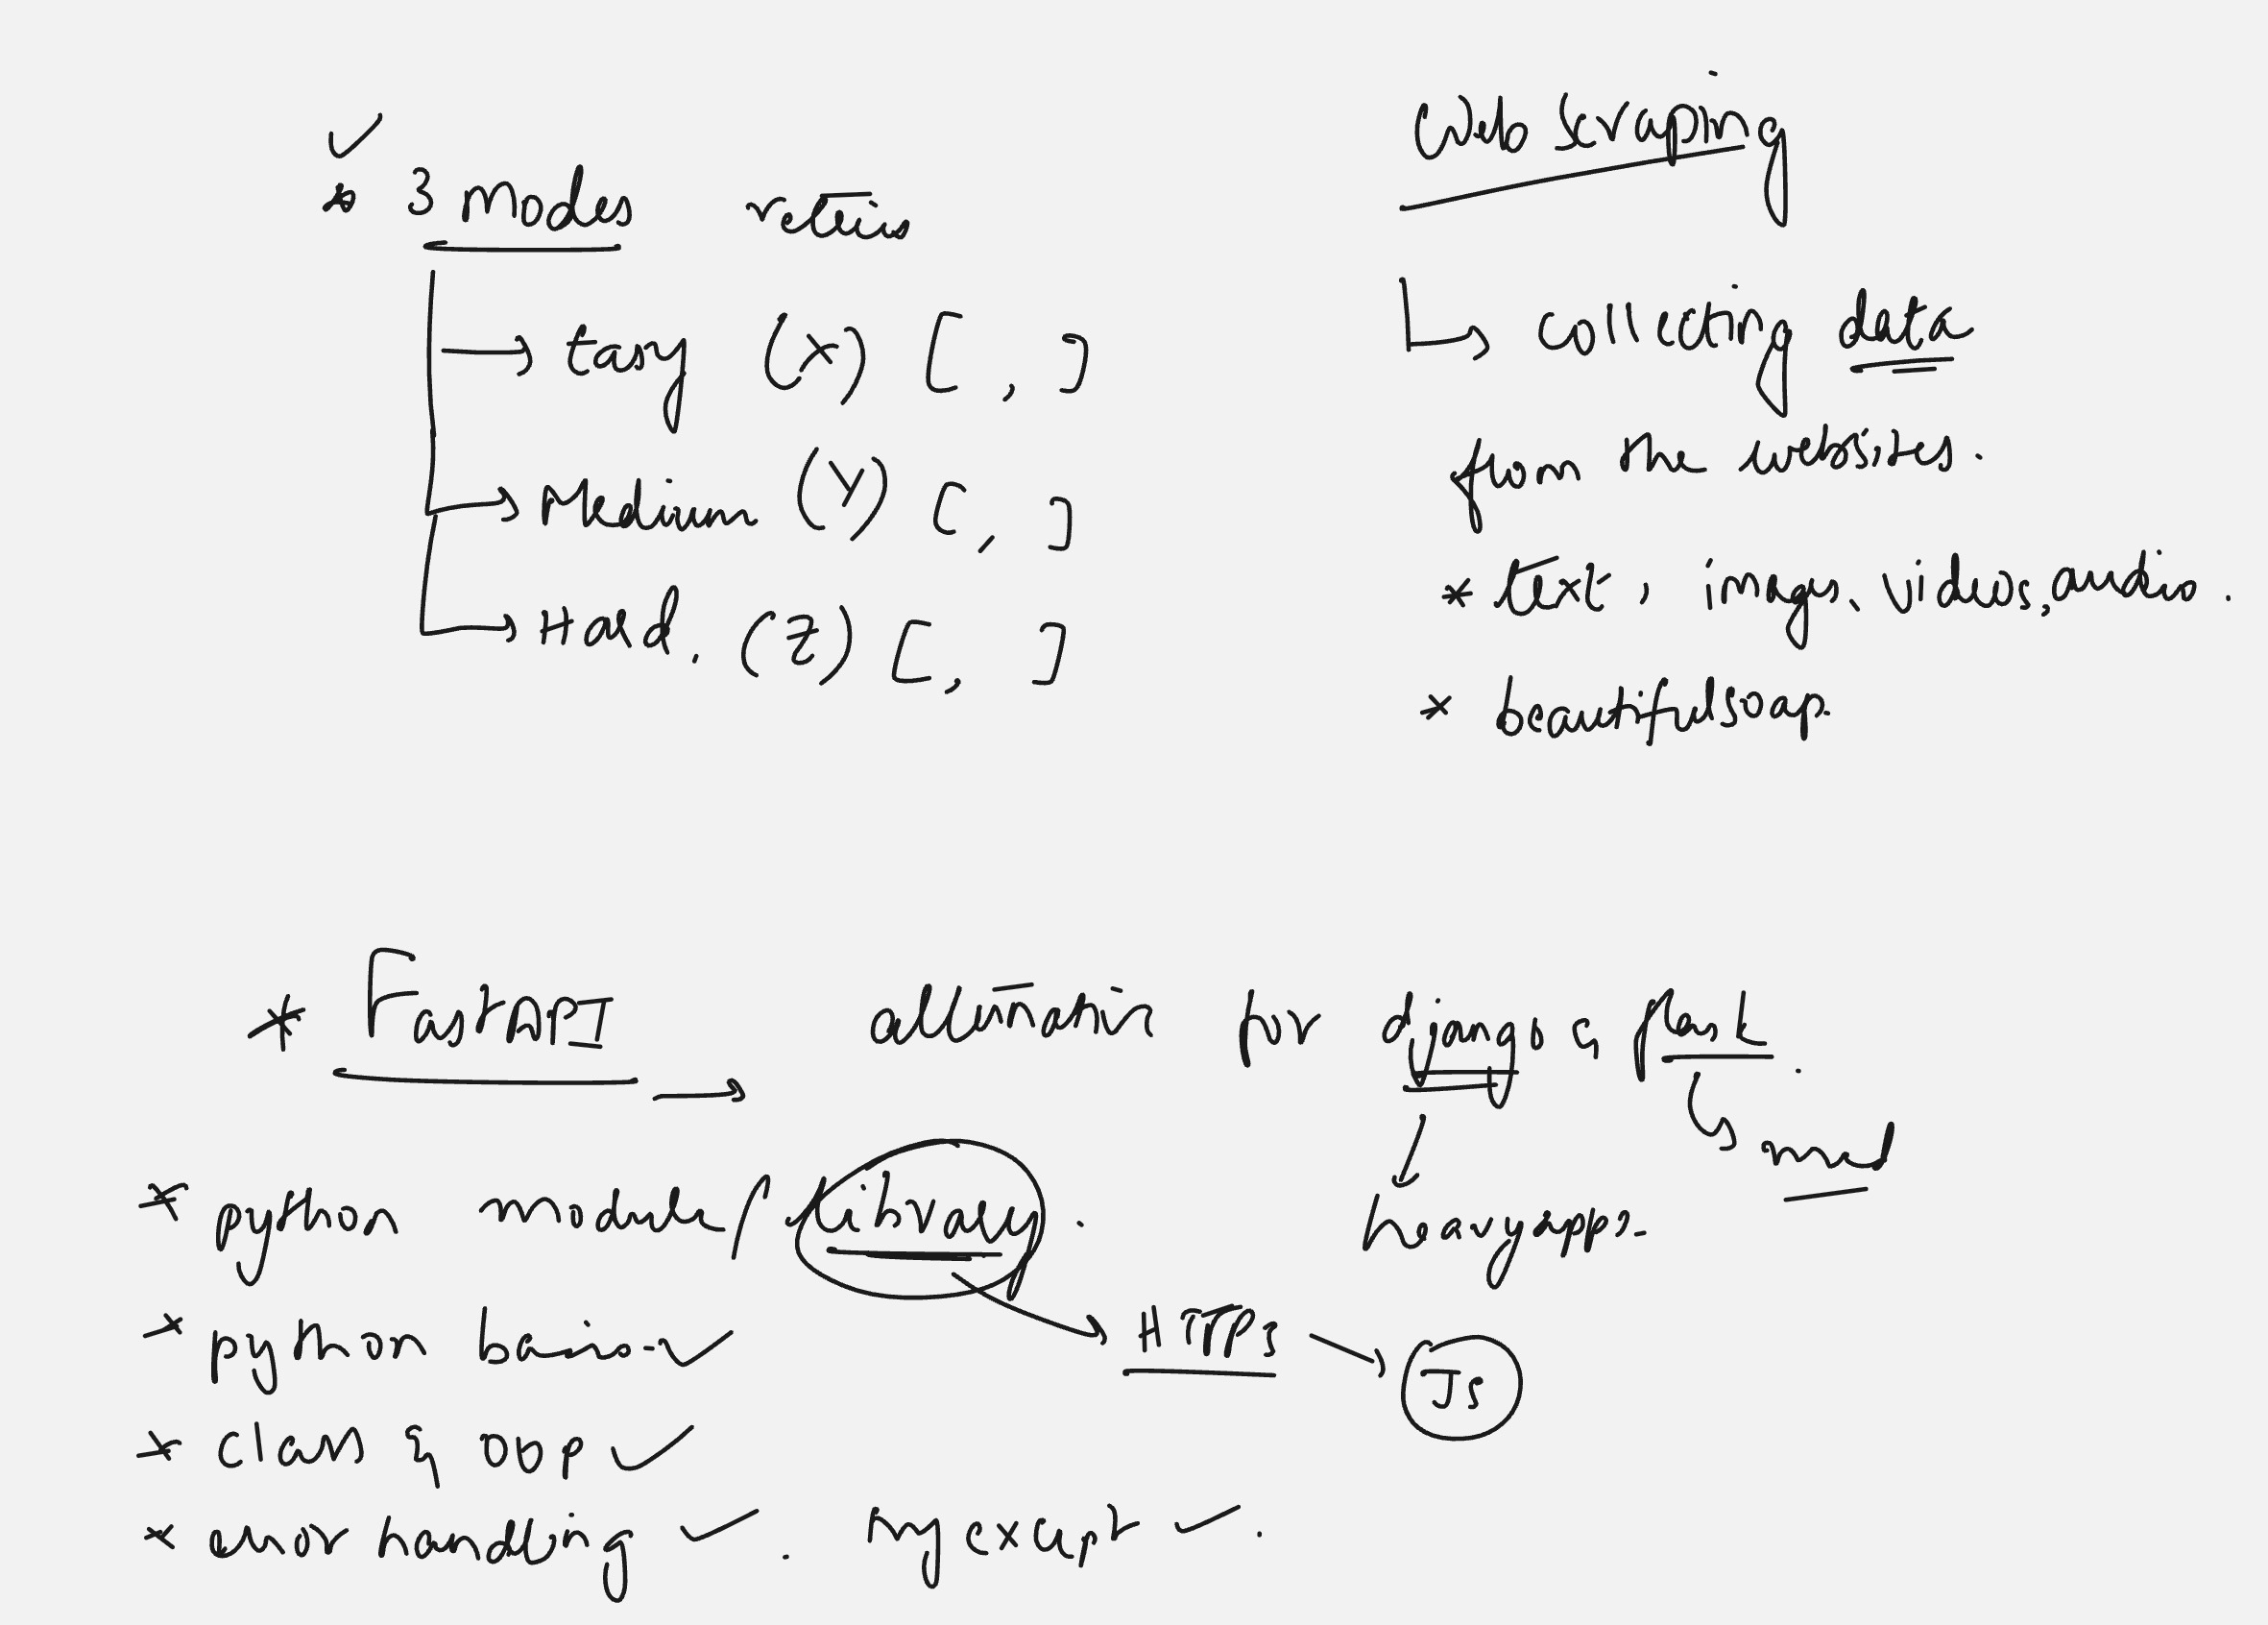 * 3 Modes
→ Easy (X) [ , ]
→ Medium (Y) [ , ]
→ Hard. (Z) [ , ]
Web scraping
↳ collecting data
from the websites.
* text, images, videos, audios.
* beautifulsoap
* FastAPI → alternative for django & flask.
heavy apps.
* python module / library.
* python basics
HTTPS → JS
* class & OOP ✓
* error handling ✓. try except ✓.